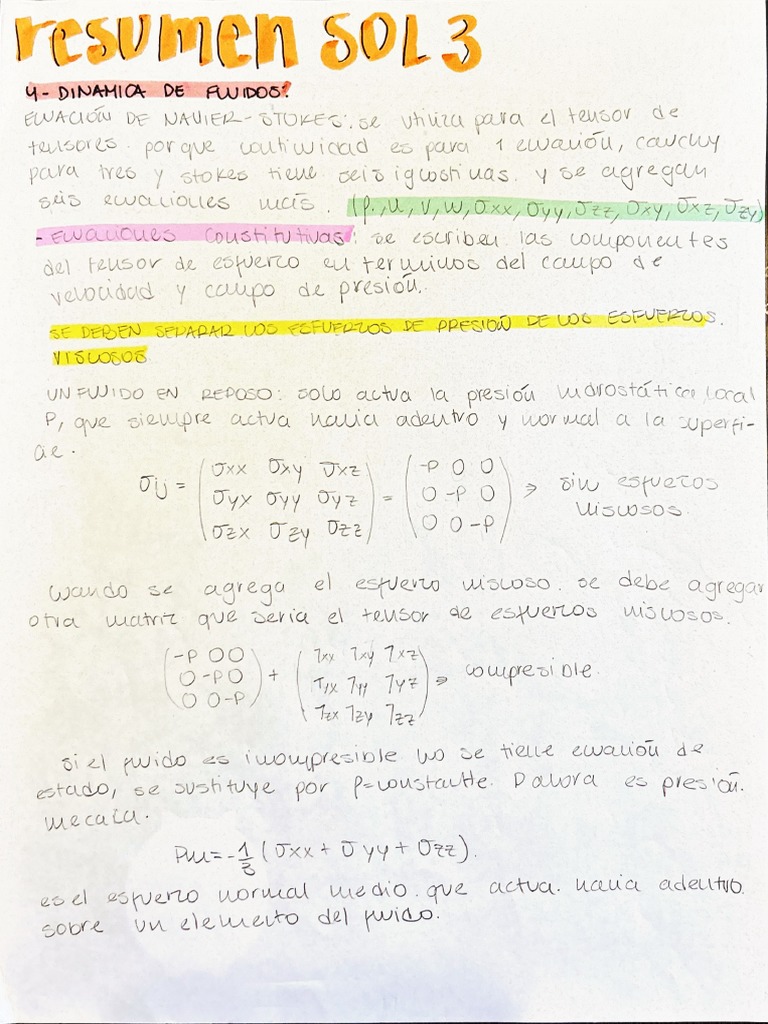 resumen SOL 3
4- DINAMICA DE FLUIDOS:
ECUACIÓN DE NAVIER-STOKES: se utiliza para el tensor de
tensores. porque continuidad es para 1 ecuación, cauchy
para tres y stokes tiene seis igcostinas. y se agregan
seis ecuaciones más. (ρ, u, v, w, σxx, σyy, σzz, σxy, σxz, σzy)
- Ecuaciones constitutivas: se escriben las componentes
del tensor de esfuerzo en terminos del campo de
velocidad y campo de presión.
SE DEBEN SEPARAR LOS ESFUERZOS DE PRESIÓN DE LOS ESFUERZOS.
VISCOSOS
UN FLUIDO EN REPOSO: solo actua la presión hidrostática, local
P, que siempre actua hacia adentro y normal a la superfi-
cie.
σij = (σxx σxy σxz) = (-P 0 0) → sin esfuerzos
(σyx σyy σyz) (0 -P 0) viscosos.
(σzx σzy σzz) (0 0 -P)
cuando se agrega el esfuerzo viscoso. se debe agregar
otra matriz que seria el tensor de esfuerzos viscosos.
(-P 0 0) + (τxx τxy τxz) ⇒ compresible.
(0 -P 0) (τyx τyy τyz)
(0 0 -P) (τzx τzy τzz)
si el fluido es incompresible no se tiene ecuación de
estado, se sustituye por ρ=constante. P ahora es presión.
mecaica.
Pm = -1/3 (σxx + σyy + σzz).
es el esfuerzo normal medio. que actua. hacia adentro.
sobre un elemento del fluido.